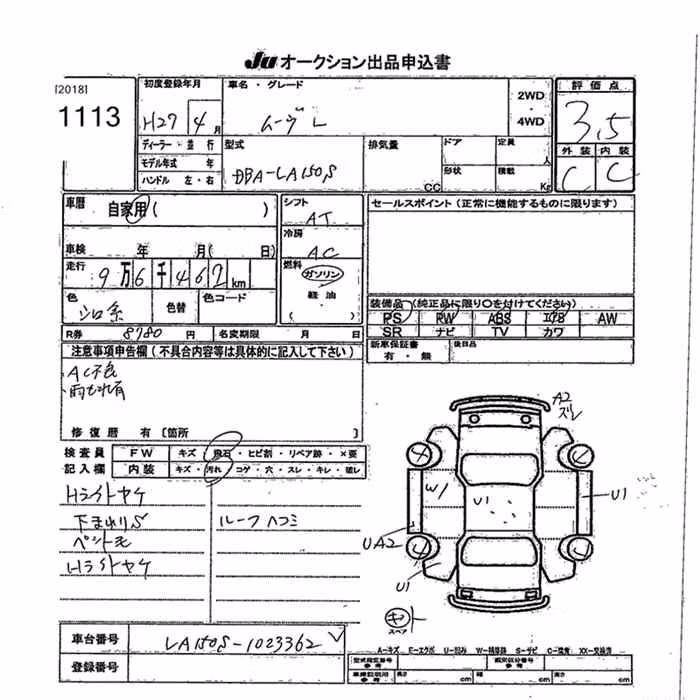 Ju オークション出品申込書
[2018]
1113
初度登録年月
H27 4月
車名・グレード
ムーヴ L
2WD
・
4WD
評価点
3.5
外装 内装
C C
ディーラー・並行
モデル年式 年
ハンドル 左・右
型式
DBA-LA150S
排気量
CC
ドア
形状
定員
人
積載
Kg
車歴
自家用 ( )
車検 年 月 ( 日)
走行
9万6千462km
色
シロ系
色替
色コード
シフト
AT
冷房
AC
燃料
ガソリン
軽油
セールスポイント(正常に機能するものに限ります)
装備品(純正品に限り○を付けてください)
PS RW ABS エアB AW
SR ナビ TV カワ
R券 8780 円 名変期限 月 日
新車保証書
有・無
後日品
注意事項申告欄(不具合内容等は具体的に記入して下さい)
AC不良
雨もれ有
修復歴 有 [箇所 ]
検査員
記入欄
FW キズ・飛石・ヒビ割・リペア跡・×要
内装 キズ・汚れ・コゲ・穴・スレ・キレ・破レ
Hライトヤケ
下まわりS
ペット毛
Hライトヤケ
ルーフヘコミ
A2
ズレ
W1
U1
U1
UA2
U1
キット
スペア
車台番号 LA150S-1023362
登録番号
A-キズ E-エクボ U-凹み W-補修跡 S-サビ C-腐食 XX-交換済
型式指定番号
参考
類別区分番号
参考
車検証引用
参考
長さ cm 幅 cm 高さ cm